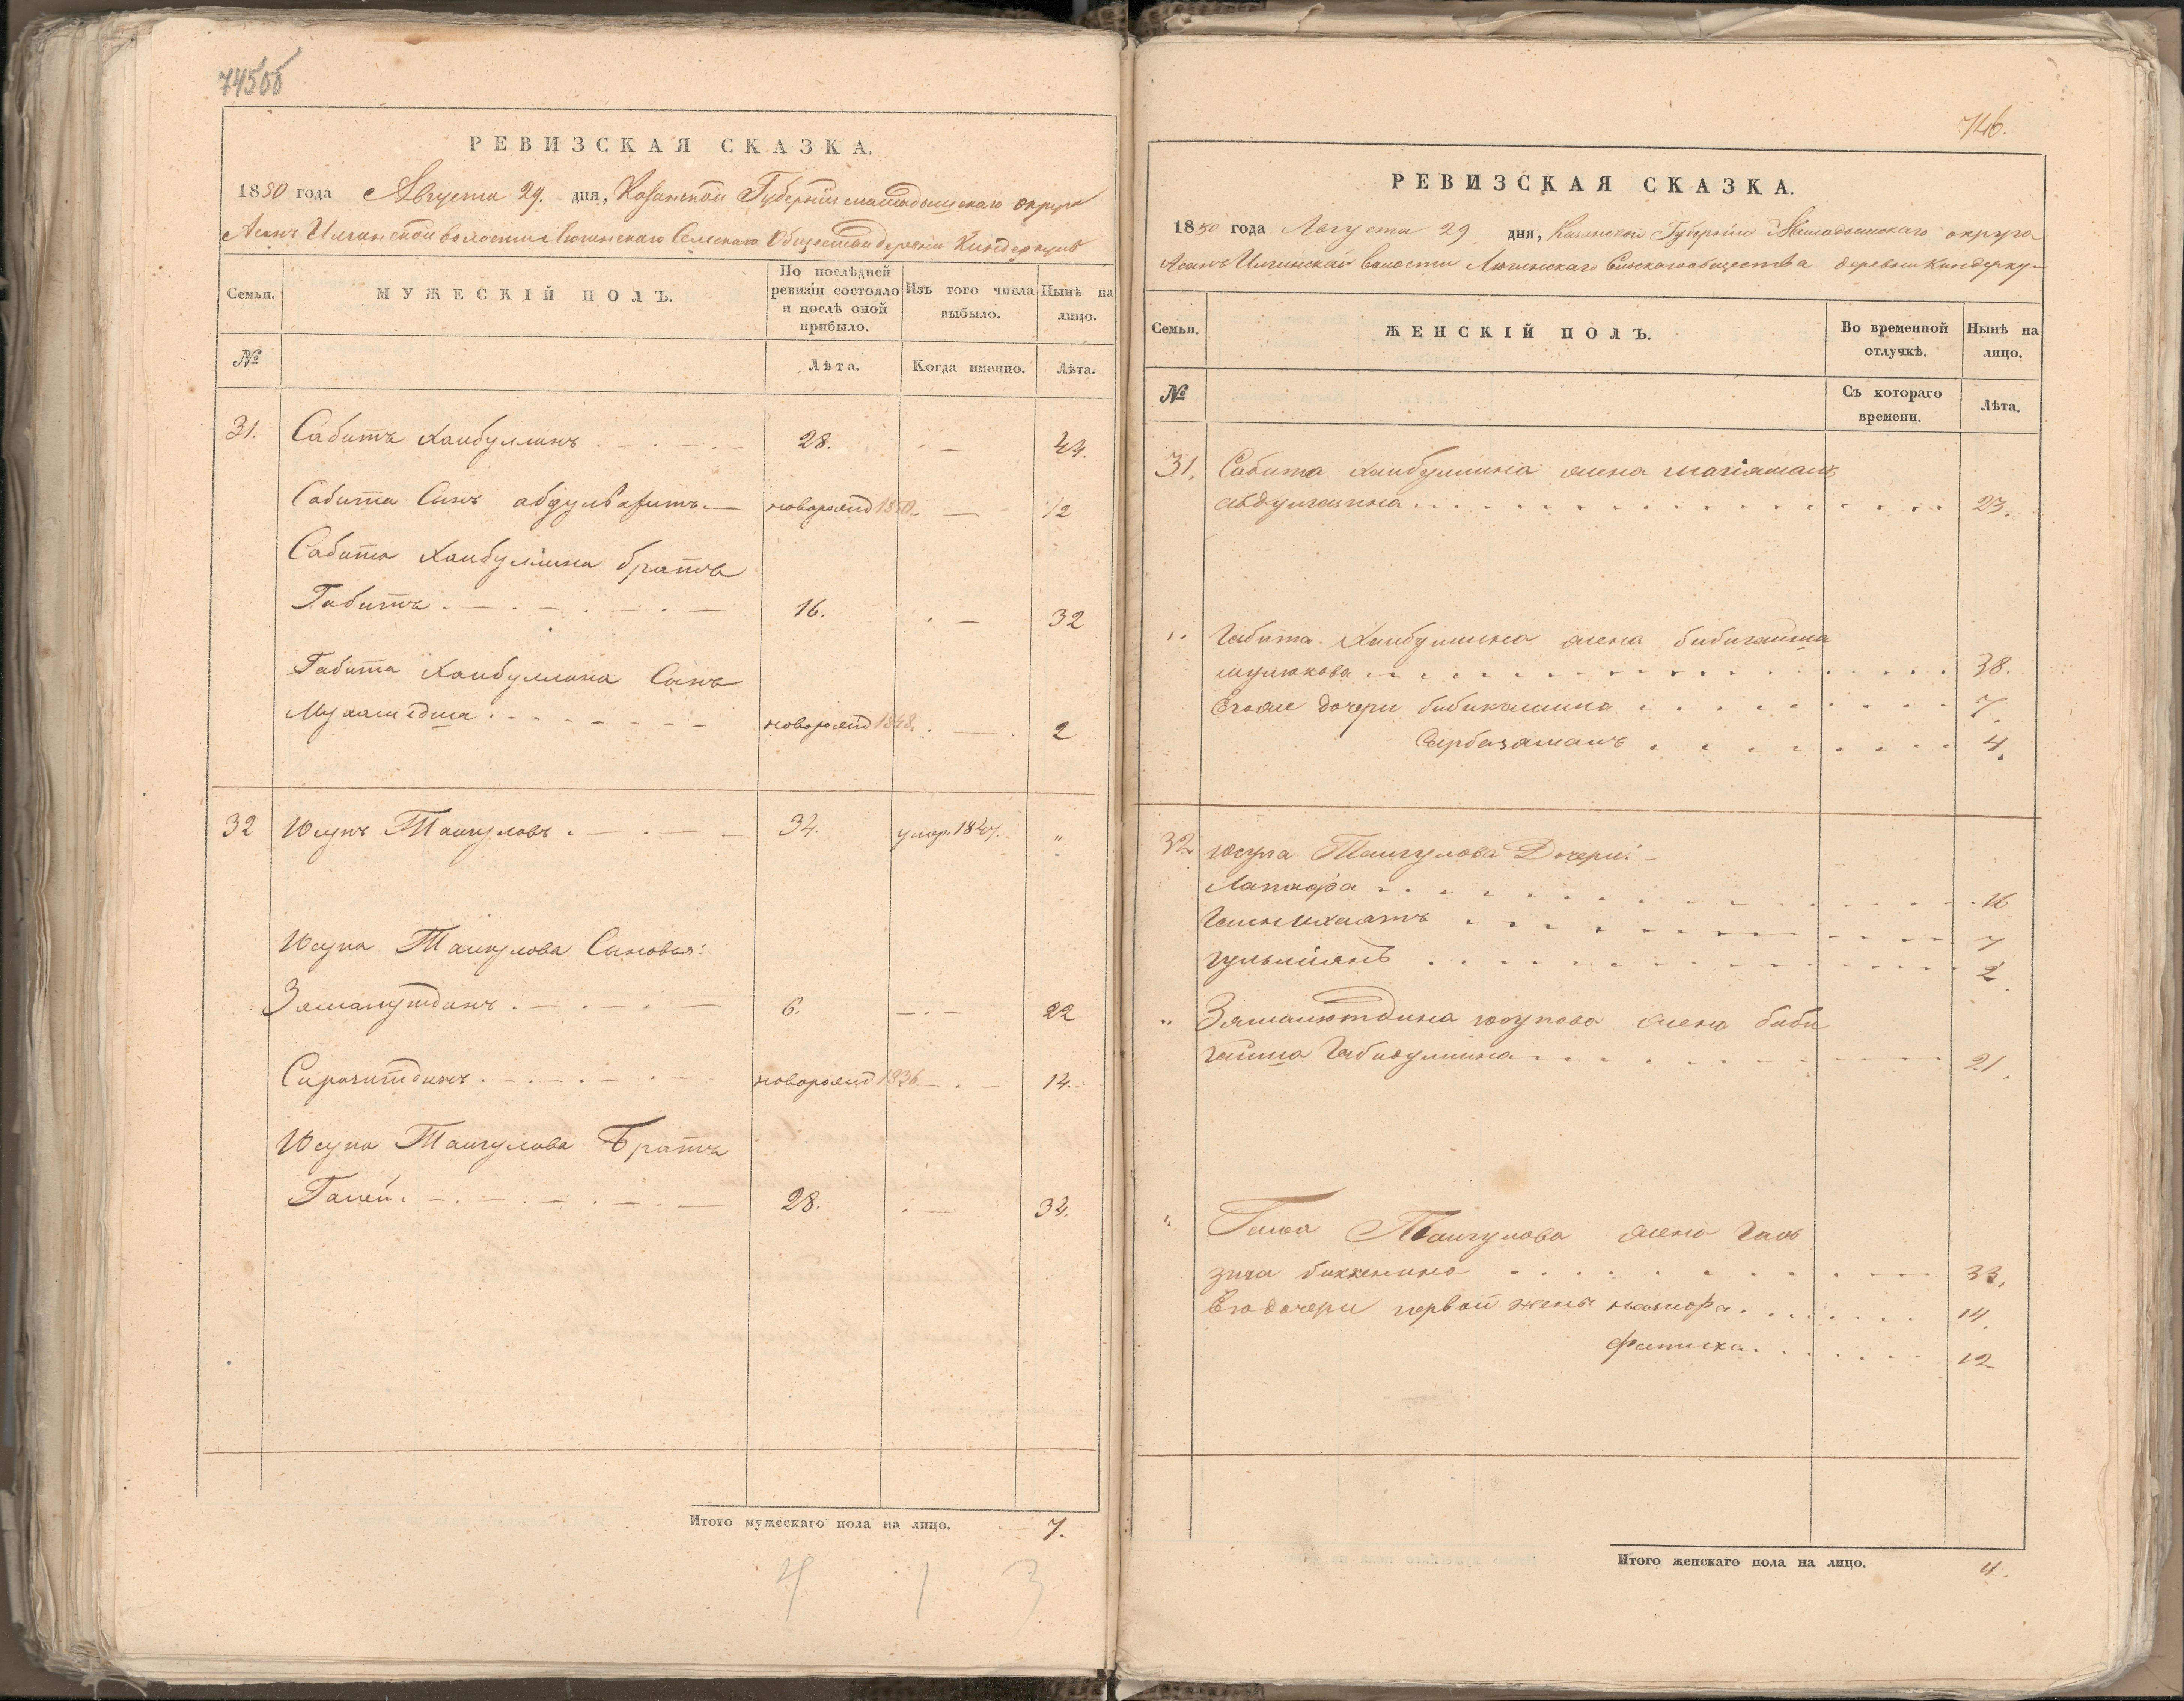 745об
РЕВИЗСКАЯ СКАЗКА.
1850 года Августа 29. дня, Казанской Губернiи мамадышскаго округа
Асанъ Илгинской волости Люгинскаго Сельскаго Общества деревни Киндеркуль
Семьи.
МУЖЕСКIЙ ПОЛЪ.
По послѣдней ревизiи состояло и послѣ оной прибыло.
Изъ того числа выбыло.
Нынѣ на лицо.
№
Лѣта.
Когда именно.
Лѣта.
31. Сабитъ Хаибуллинъ 28. 44.
Сабита Сынъ абдулвагитъ новорожд 1850. 1/2
Сабита Хаибуллина братъ
Габитъ 16. 32
Габита Хаибуллина Сынъ
Мухаметша новорожд 1848. 2
32 Юсупъ Таигуловъ 34. умер. 1847. "
Юсупа Таигулова Сыновья:
Зямалутдинъ 6. 22
Сиразитдинъ новорожд 1836 14.
Юсупа Таигулова Братъ
Галей 28. 34.
Итого мужескаго пола на лицо. 7.
4 1 3
746.
РЕВИЗСКАЯ СКАЗКА.
1850 года Августа 29 дня, Казанской Губернiи Мамадышскаго округа
Асанъ Илгинской волости Люгинскаго Сельскаго общества деревни Киндерку
Семьи.
ЖЕНСКIЙ ПОЛЪ.
Во временной отлучкѣ.
Нынѣ на лицо.
№
Съ котораго времени.
Лѣта.
31. Сабита Хаибуллина жена
23.
" Габита Хаибуллина жена бибигаиша
мулюкова 38.
Егоже дочери бибикамила 7.
Сарбазяманъ 4.
32 Юсупа Таигулова Дочери:
Латифа 16
7
гульмiянъ 2
" Зямалютдина юсупова жена биби
гаиша Габидуллина 21.
" Галея Таигулова жена
биккенина 33.
Его дочери первой жены 14.
Фатиха 12
Итого женскаго пола на лицо. 11.